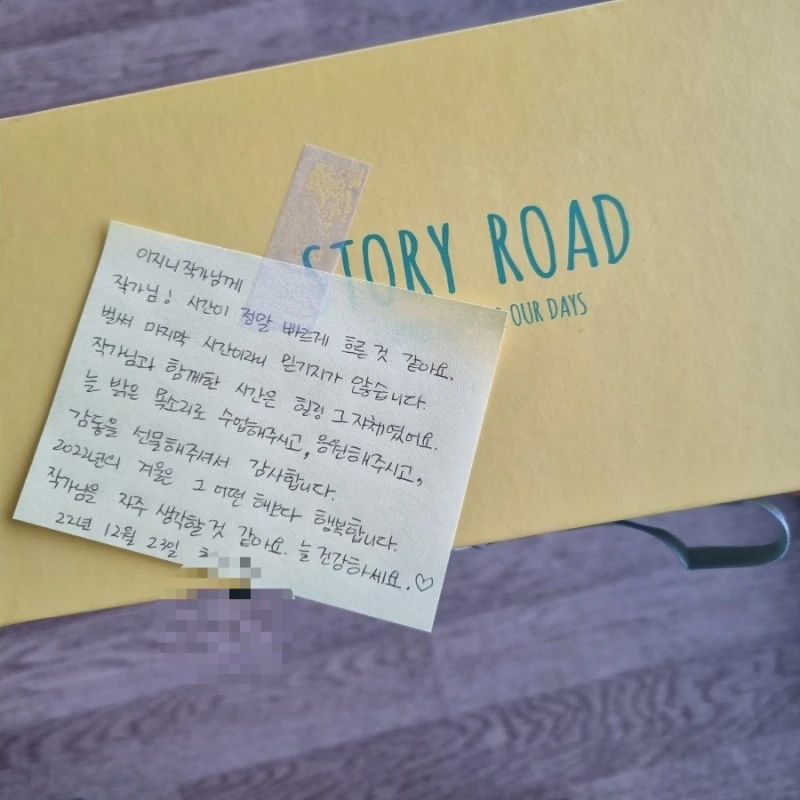 STORY ROAD
OUR DAYS
이지니 작가님께
작가님! 시간이 정말 빠르게 흐를 것 같아요.
벌써 마지막 시간이라니 믿기지가 않습니다.
작가님과 함께한 시간은 힐링 그 자체였어요.
늘 밝은 목소리로 수업해주시고, 응원해주시고,
감동을 선물해주셔서 감사합니다.
2022년의 겨울은 그 어떤 해보다 행복합니다.
작가님을 자주 생각할 것 같아요. 늘 건강하세요.♡
22년 12월 23일